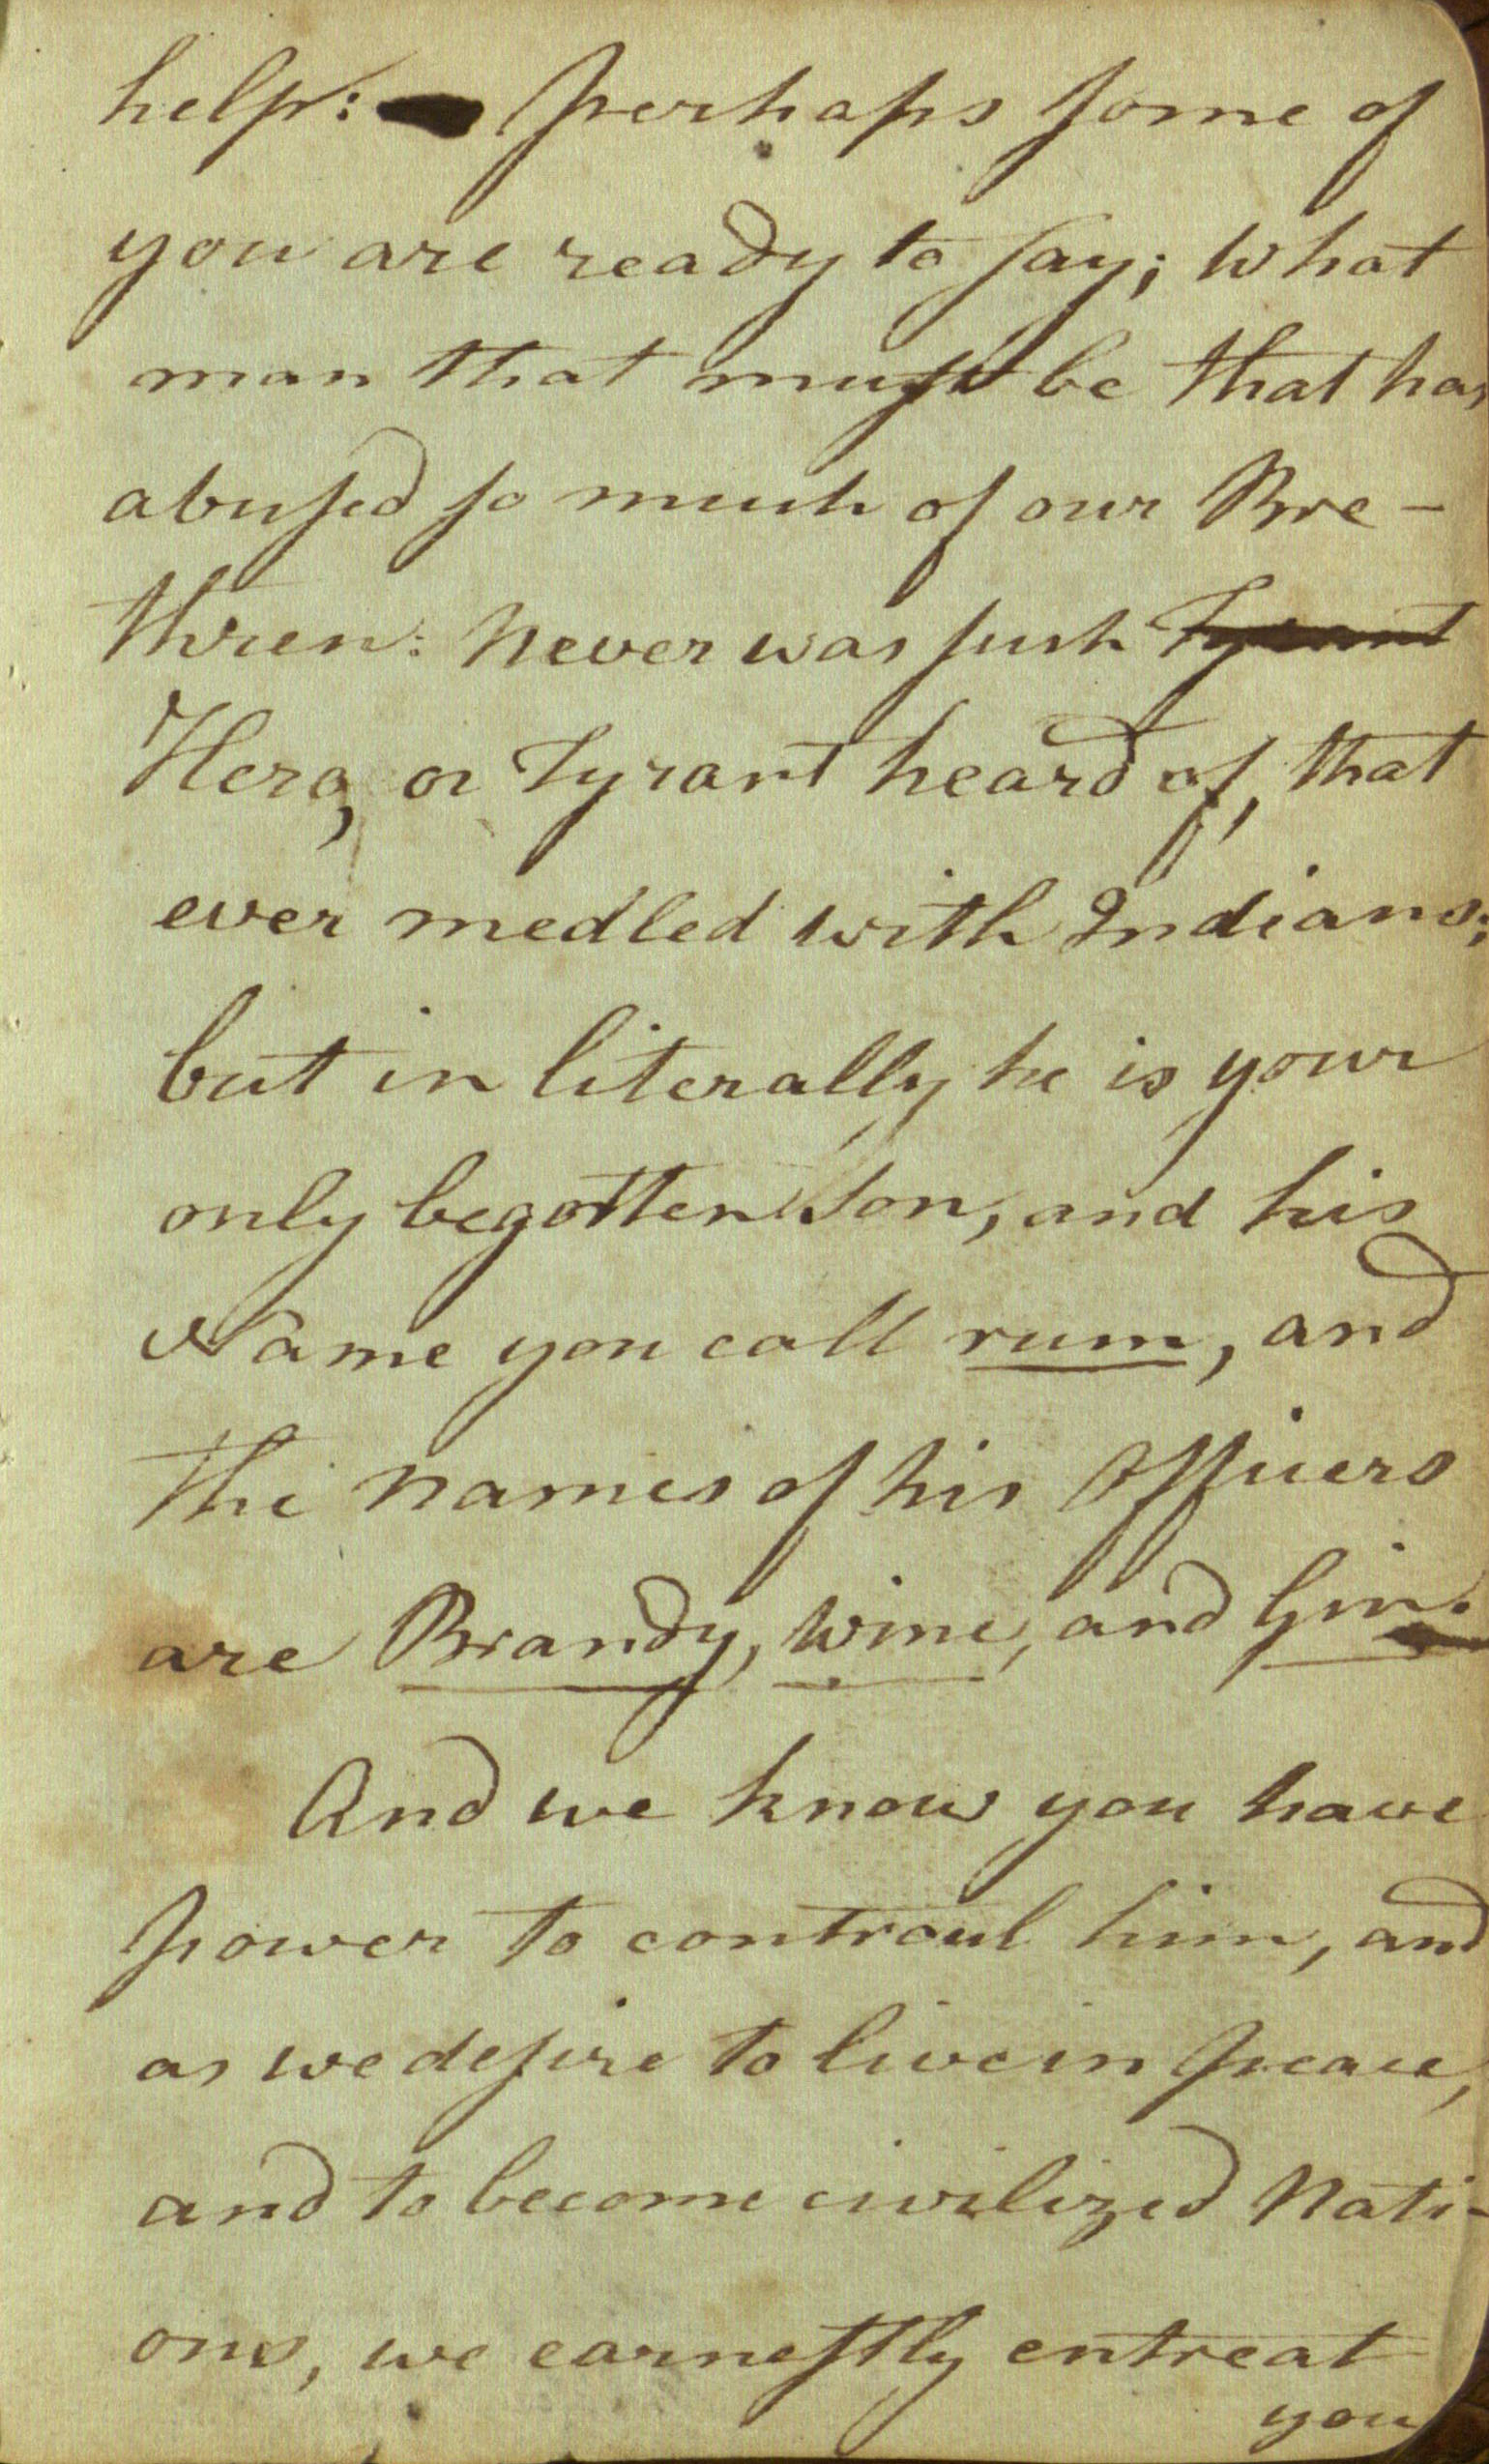 help: perhaps some of
you are ready to say; what
man that must be that has
abused so much of our Bre-
thren: Never was such Tyrant
Hero, or Tyrant heard of, that
ever medled with Indians;
but in literally he is your
only begotten Son, and his
Name you call rum, and
the names of his Officers
are Brandy, Wine, and Gin.
And we know you have
power to controul him, and
as we desire to live in peace,
and to become civilized Nati-
ons, we earnestly entreat
you